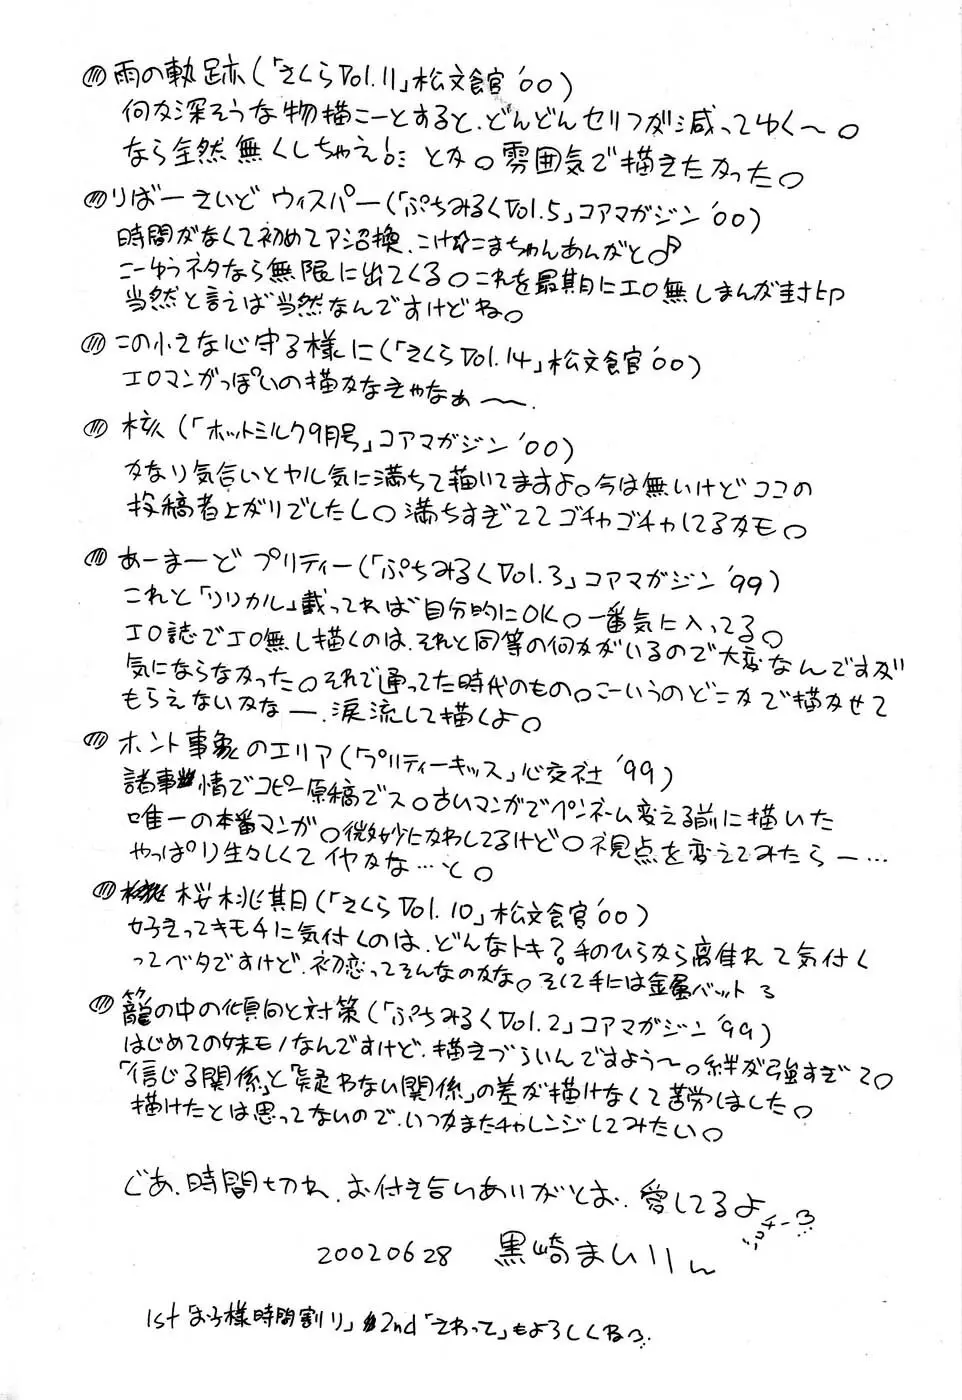 雨の軌跡(「さくらVol.11」松文館'00)
何か深そうな物描こーとすると、どんどんセリフが減ってゆく〜。
なら全然無くしちゃえ!とか。雰囲気で描きたかった。
りばーさいど ウィスパー(「ぷちみるくVol.5」コアマガジン'00)
時間がなくて初めてア召喚、こまちゃんあんがと♪
こーゆうネタなら無限に出てくる。これを最期にエロ無しまんが封印
当然と言えば当然なんですけどね。
この小さな心守る様に(「さくらVol.14」松文館'00)
エロマンガっぽいの描かなきゃなぁ〜。
核(「ホットミルク9月号」コアマガジン'00)
かなり気合いとヤル気に満ちて描いてますよ。今は無いけどココの
投稿者上がりでしたし。満ちすぎててゴチャゴチャしてるかも。
あーまーど プリティー(「ぷちみるくVol.3」コアマガジン'99)
これと「リリカル」載ってれば自分的にOK。一番気に入ってる。
エロ誌でエロ無し描くのは、それと同等の何かがいるので大変なんですが
気にならなかった。それで通ってた時代のもの。こーいうのどこかで描かせて
もらえないかなー、涙流して描くよ。
ホント事象のエリア(「プリティーキッス」心交社'99)
諸事情でコピー原稿でス。古いマンガでペンネーム変える前に描いた
唯一の本番マンガ。微妙にかわしてるけど。視点を変えてみたらー…
やっぱり生々しくてイヤかな…と。
桜桃期(「さくらVol.10」松文館'00)
好きってキモチに気付くのは、どんなトキ?手のひらから離れて気付く
ってベタですけど、初恋ってそんなのかな。そして手には金属バット3
籠の中の傾向と対策(「ぷちみるくVol.2」コアマガジン'99)
はじめての妹モノなんですけど、描きづらいんですよう〜。絆が強すぎて。
「信じる関係」と「疑わない関係」の差が描けなくて苦労しました。
描けたとは思ってないので、いつかまたチャレンジしてみたい。
じあ、時間切れ、お付き合いありがとお、愛してるよ
チュー3
20020628 黒崎まいりん
1st「お子様時間割り」2nd「さわって」もよろしくね